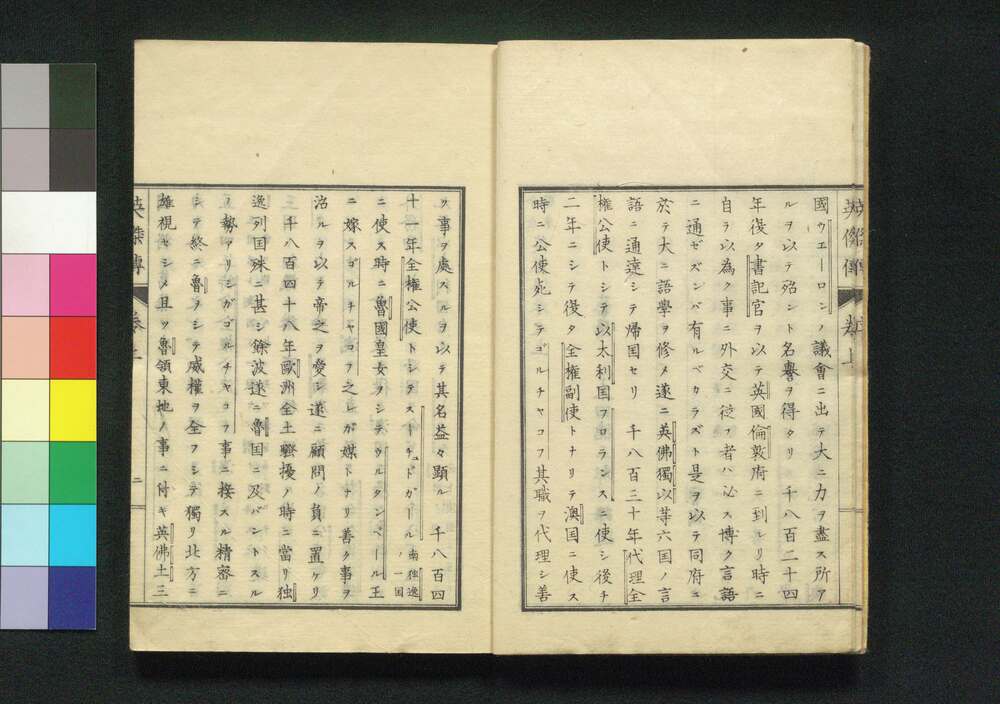 國ウエーロンノ議會ニ出テ大ニ力ヲ盡ス所ア
ルヲ以テ殆ント名譽ヲ得タリ 千八百二十四
年役タ書記官ヲ以テ英國倫敦府ニ到レリ時ニ
自ラ以為ク事ニ外交ニ從フ者ハ必ス博ク言語
ニ通ゼズンバ有ルベカラズト是ヲ以テ同府ニ
於テ大ニ語學ヲ修メ遂ニ英佛獨以等六国ノ言
語ニ通達シテ帰国セリ 千八百三十年代理全
権公使トシテ以太利国フロランスニ使シ後チ
二年ニシテ役タ全権副使トナリテ澳国ニ使ス
時ニ公使死シテゴルチヤコフ其職ヲ代理シ善
英傑傳 巻上
ク事ヲ處スルヲ以テ其名益々顯ル 千八百四
十一年全權公使トシテスーチュドガール南独逸ノ一国
ニ使ス時ニ魯國皇女ヲシテウルタンベール王
ニ嫁スゴルチヤコフ之レガ媒トナリ善ク事ヲ
治ルヲ以テ帝之ヲ愛シ遂ニ顧問ノ員ニ置ケリ
千八百四十八年歐洲全土騷擾ノ時ニ當リ独
逸列国殊ニ甚シ餘波遂ニ魯国ニ及バントスル
ノ勢アリシガゴルチヤコフ事ニ接スル精密ニ
シテ終ニ魯ヲシテ威權ヲ全フシテ獨リ北方ニ
雄視セシメ且ツ魯領東地ノ事ニ付キ英佛土三
英傑傳 巻上 二